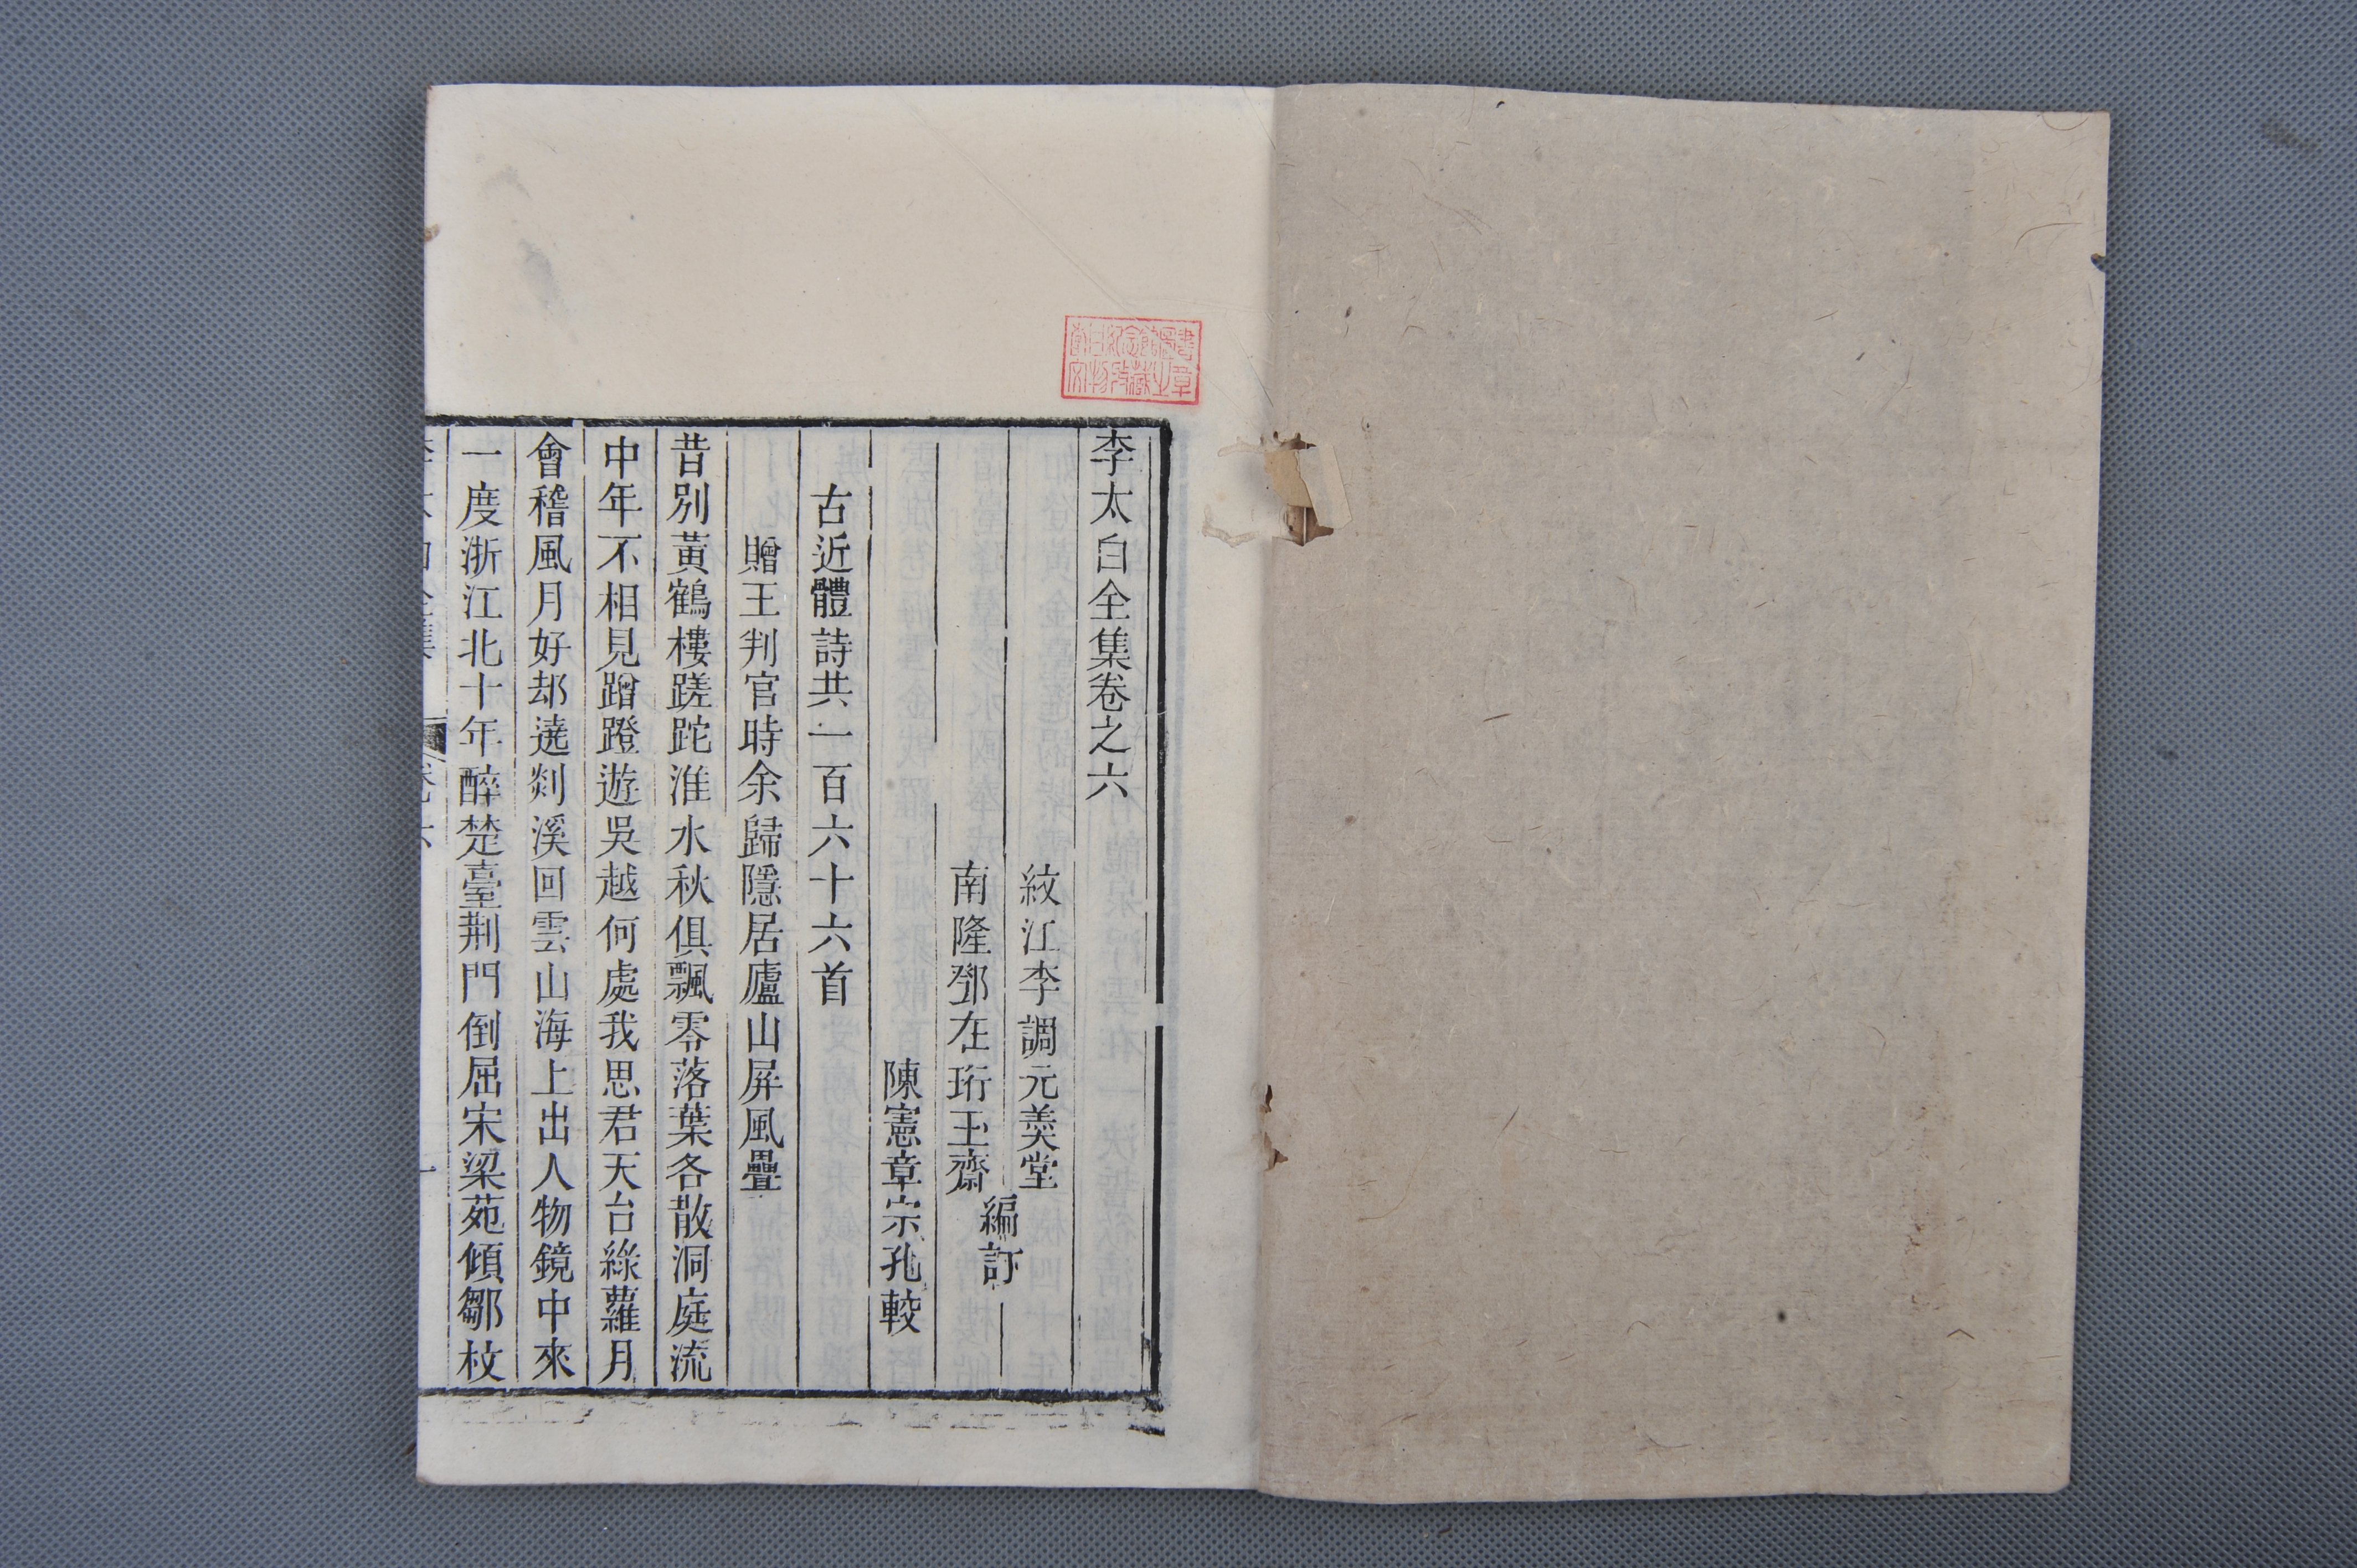 李太白全集卷之六
紋江李調元羹堂
南隆鄧在珩玉齋
編訂
陳憲章宗孔較
古近體詩共一百六十六首
贈王判官時余歸隱居廬山屏風疊
昔別黃鶴樓蹉跎淮水秋俱飄零落葉各散洞庭流
中年不相見蹭蹬遊吳越何處我思君天台綠蘿月
會稽風月好却遶剡溪回雲山海上出人物鏡中來
一度浙江北十年醉楚臺荆門倒屈宋梁苑傾鄒枚